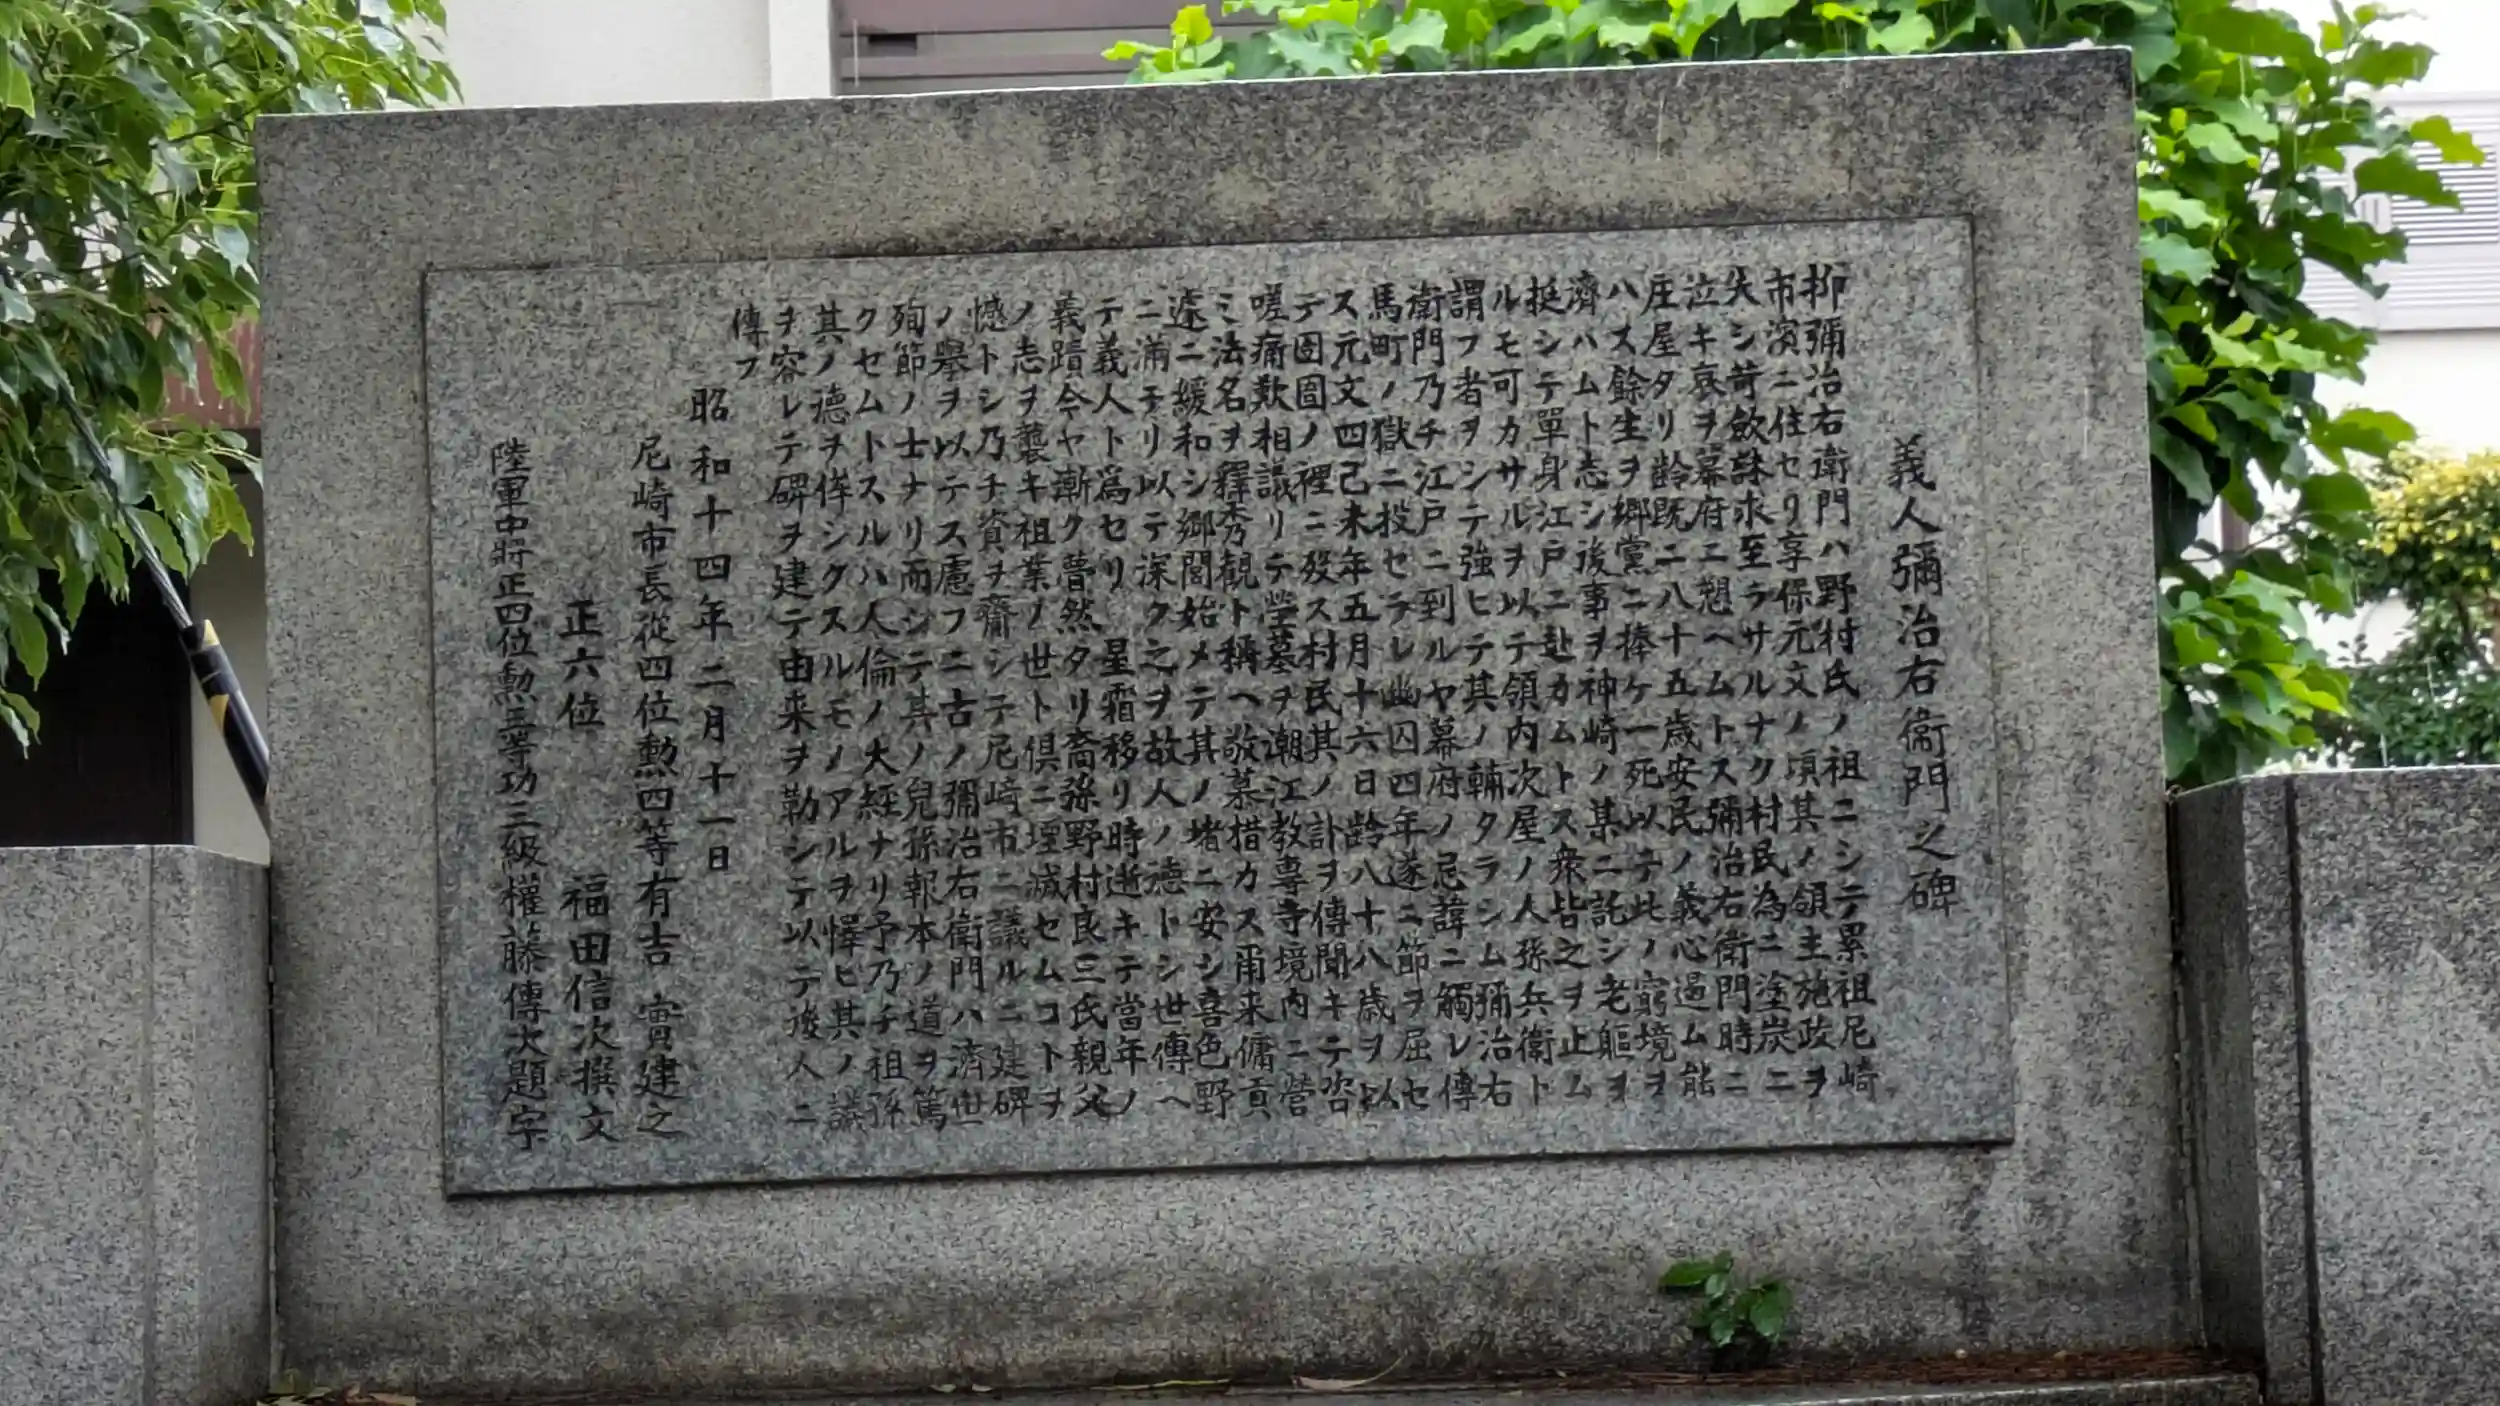 義人彌治右衞門之碑
抑彌治右衛門ハ野村氏ノ祖ニシテ累祖尼崎
市濱ニ住セリ享保元文ノ頃其ノ領主施政ヲ
失シ苛斂誅求至ラサルナク村民為ニ塗炭ニ
泣キ哀ヲ幕府ニ愬ヘムトス彌治右衛門時ニ
庄屋タリ齢既ニ八十五歳安民ノ義心遏ム能
ハス餘生ヲ郷黨ニ捧ケ一死以テ此ノ窮境ヲ
濟ハムト志シ後事ヲ神崎ノ某ニ託シ老軀ヲ
挺シテ單身江戸ニ赴カムトス衆皆之ヲ止ム
ルモ可カサルヲ以テ領内次屋ノ人孫兵衛ト
謂フ者ヲシテ強ヒテ其ノ輔タラシム彌治右
衛門乃チ江戸ニ到ルヤ幕府ノ忌諱ニ觸レ傳
馬町ノ獄ニ投セラレ幽囚四年遂ニ節ヲ屈セ
ス元文四己未年五月十六日齢八十八歳ヲ以
テ囹圄ノ裡ニ歿ス村民其ノ訃ヲ傳聞キテ咨
嗟痛歎相議リテ塋墓ヲ潮江教専寺境内ニ營
ミ法名ヲ釋秀観ト稱ヘ敬慕措カス爾来傭貢
遽ニ緩和シ郷閭始メテ其ノ堵ニ安シ喜色野
ニ滿テリ以テ深ク之ヲ故人ノ德トシ世傳ヘ
テ義人ト爲セリ 星霜移リ時逝キテ當年ノ
義蹟今ヤ漸ク瞢然タリ裔孫野村良三氏親父
ノ志ヲ襲キ祖業ノ世ト倶ニ堙滅セムコトヲ
憾トシ乃チ資ヲ齎シテ尼崎市ニ議ルニ建碑
ノ擧ヲ以テス慮フニ古ノ彌治右衛門ハ濟世
殉節ノ士ナリ而シテ其ノ兒孫報本ノ道ヲ篤
クセムトスルハ人倫ノ大經ナリ予乃チ祖孫
其ノ德ヲ侔シクスルモノアルヲ懌ヒ其ノ議
ヲ容レテ碑ヲ建テ由来ヲ勒シテ以テ後人ニ
傳フ
昭和十四年二月十一日
尼崎市長從四位勲四等有吉 實建之
正六位 福田信次撰文
陸軍中將正四位勲三等功三級權藤傳次題字